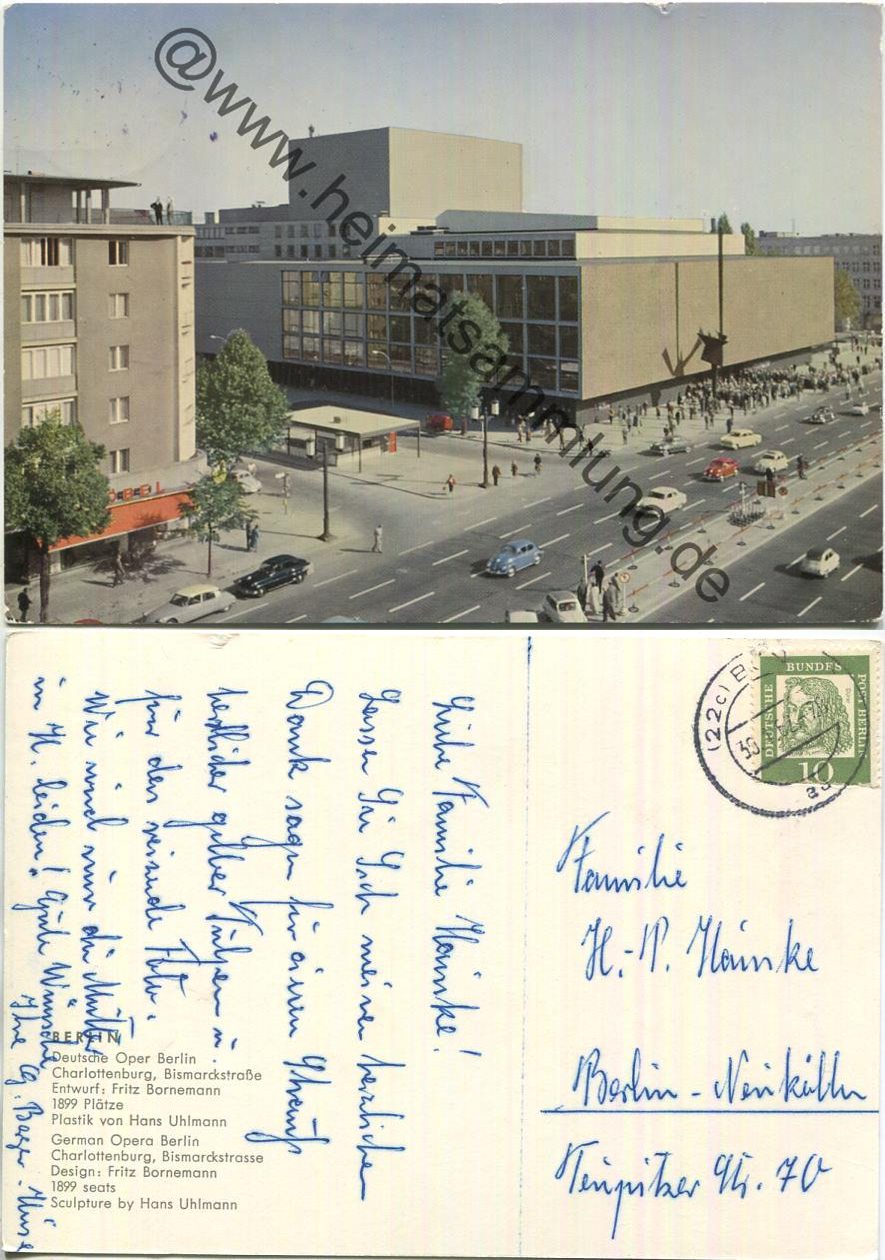 @www.heimatsammlung.de
OBEL
Liebe Familie Hainke!
Lassen Sie Sich meinen herzlichen
Dank sagen für einen Strauß
herrlicher gelber Tulpen u.
für das reizende Foto.
Wir sind nur die Mütter
in H. leiden! Gute Wünsche
Ihre
BERLIN
Deutsche Oper Berlin
Charlottenburg, Bismarckstraße
Entwurf: Fritz Bornemann
1899 Plätze
Plastik von Hans Uhlmann
German Opera Berlin
Charlottenburg, Bismarckstrasse
Design: Fritz Bornemann
1899 seats
Sculpture by Hans Uhlmann
(22c)
DEUTSCHE
BUNDES
POST BERLIN
10
Familie
H.-P. Hainke
Berlin-Neukölln
Teupitzer Str. 70